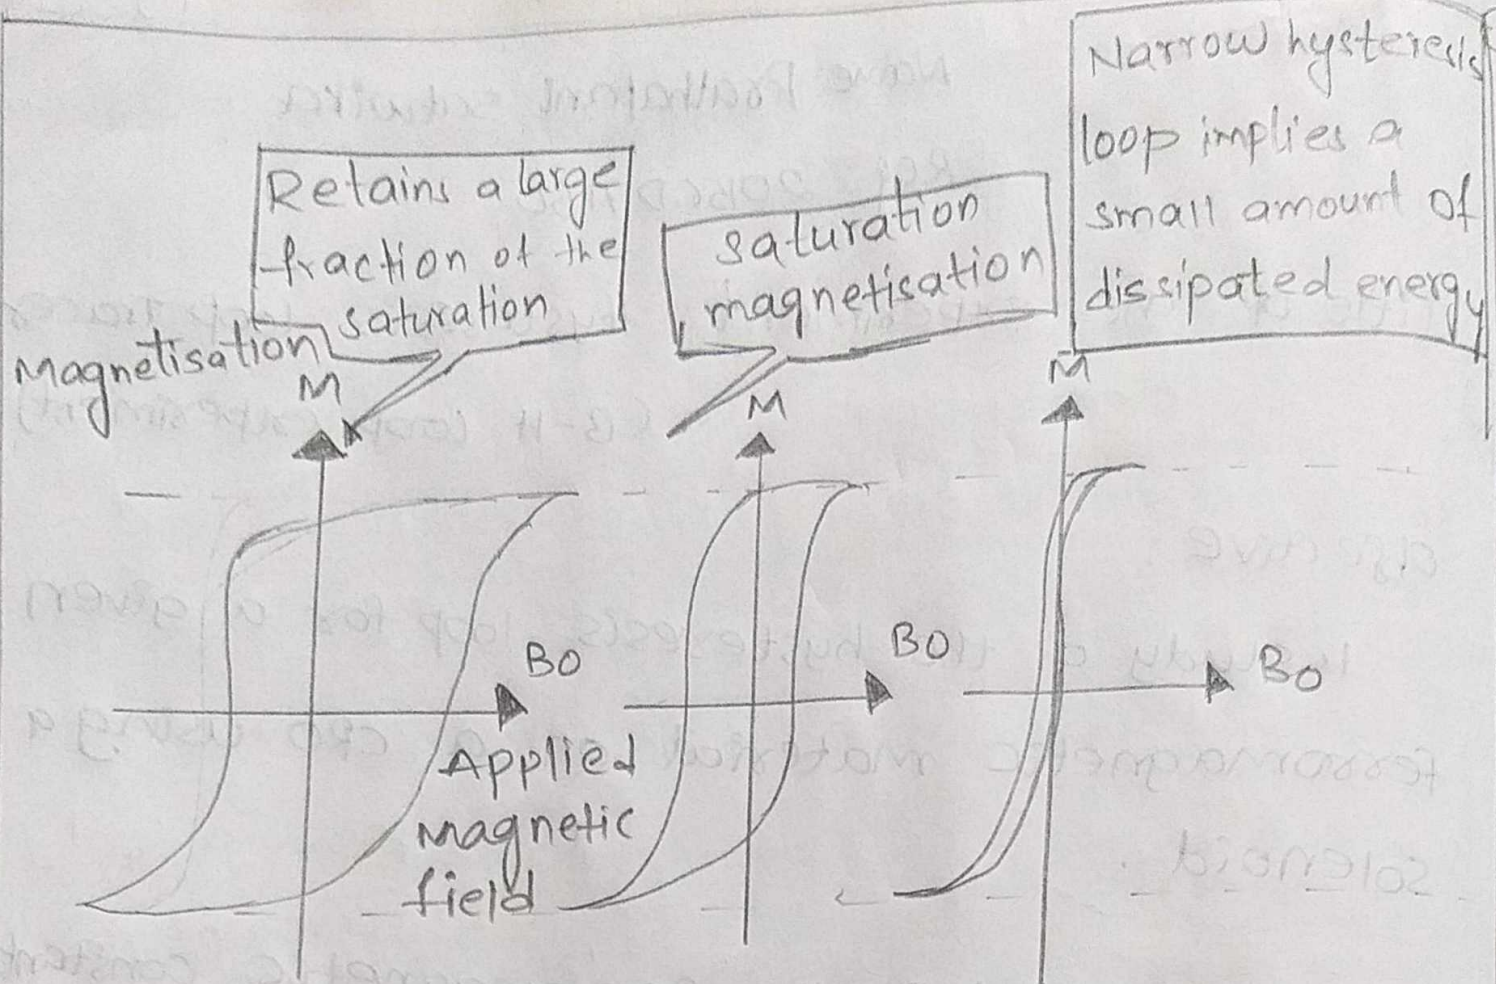 Retains a large
fraction of the
saturation
saturation
magnetisation
Narrow hysteresis
loop implies a
small amount of
dissipated energy
Magnetisation
M
M
M
B0
Applied
Magnetic
field
B0
B0